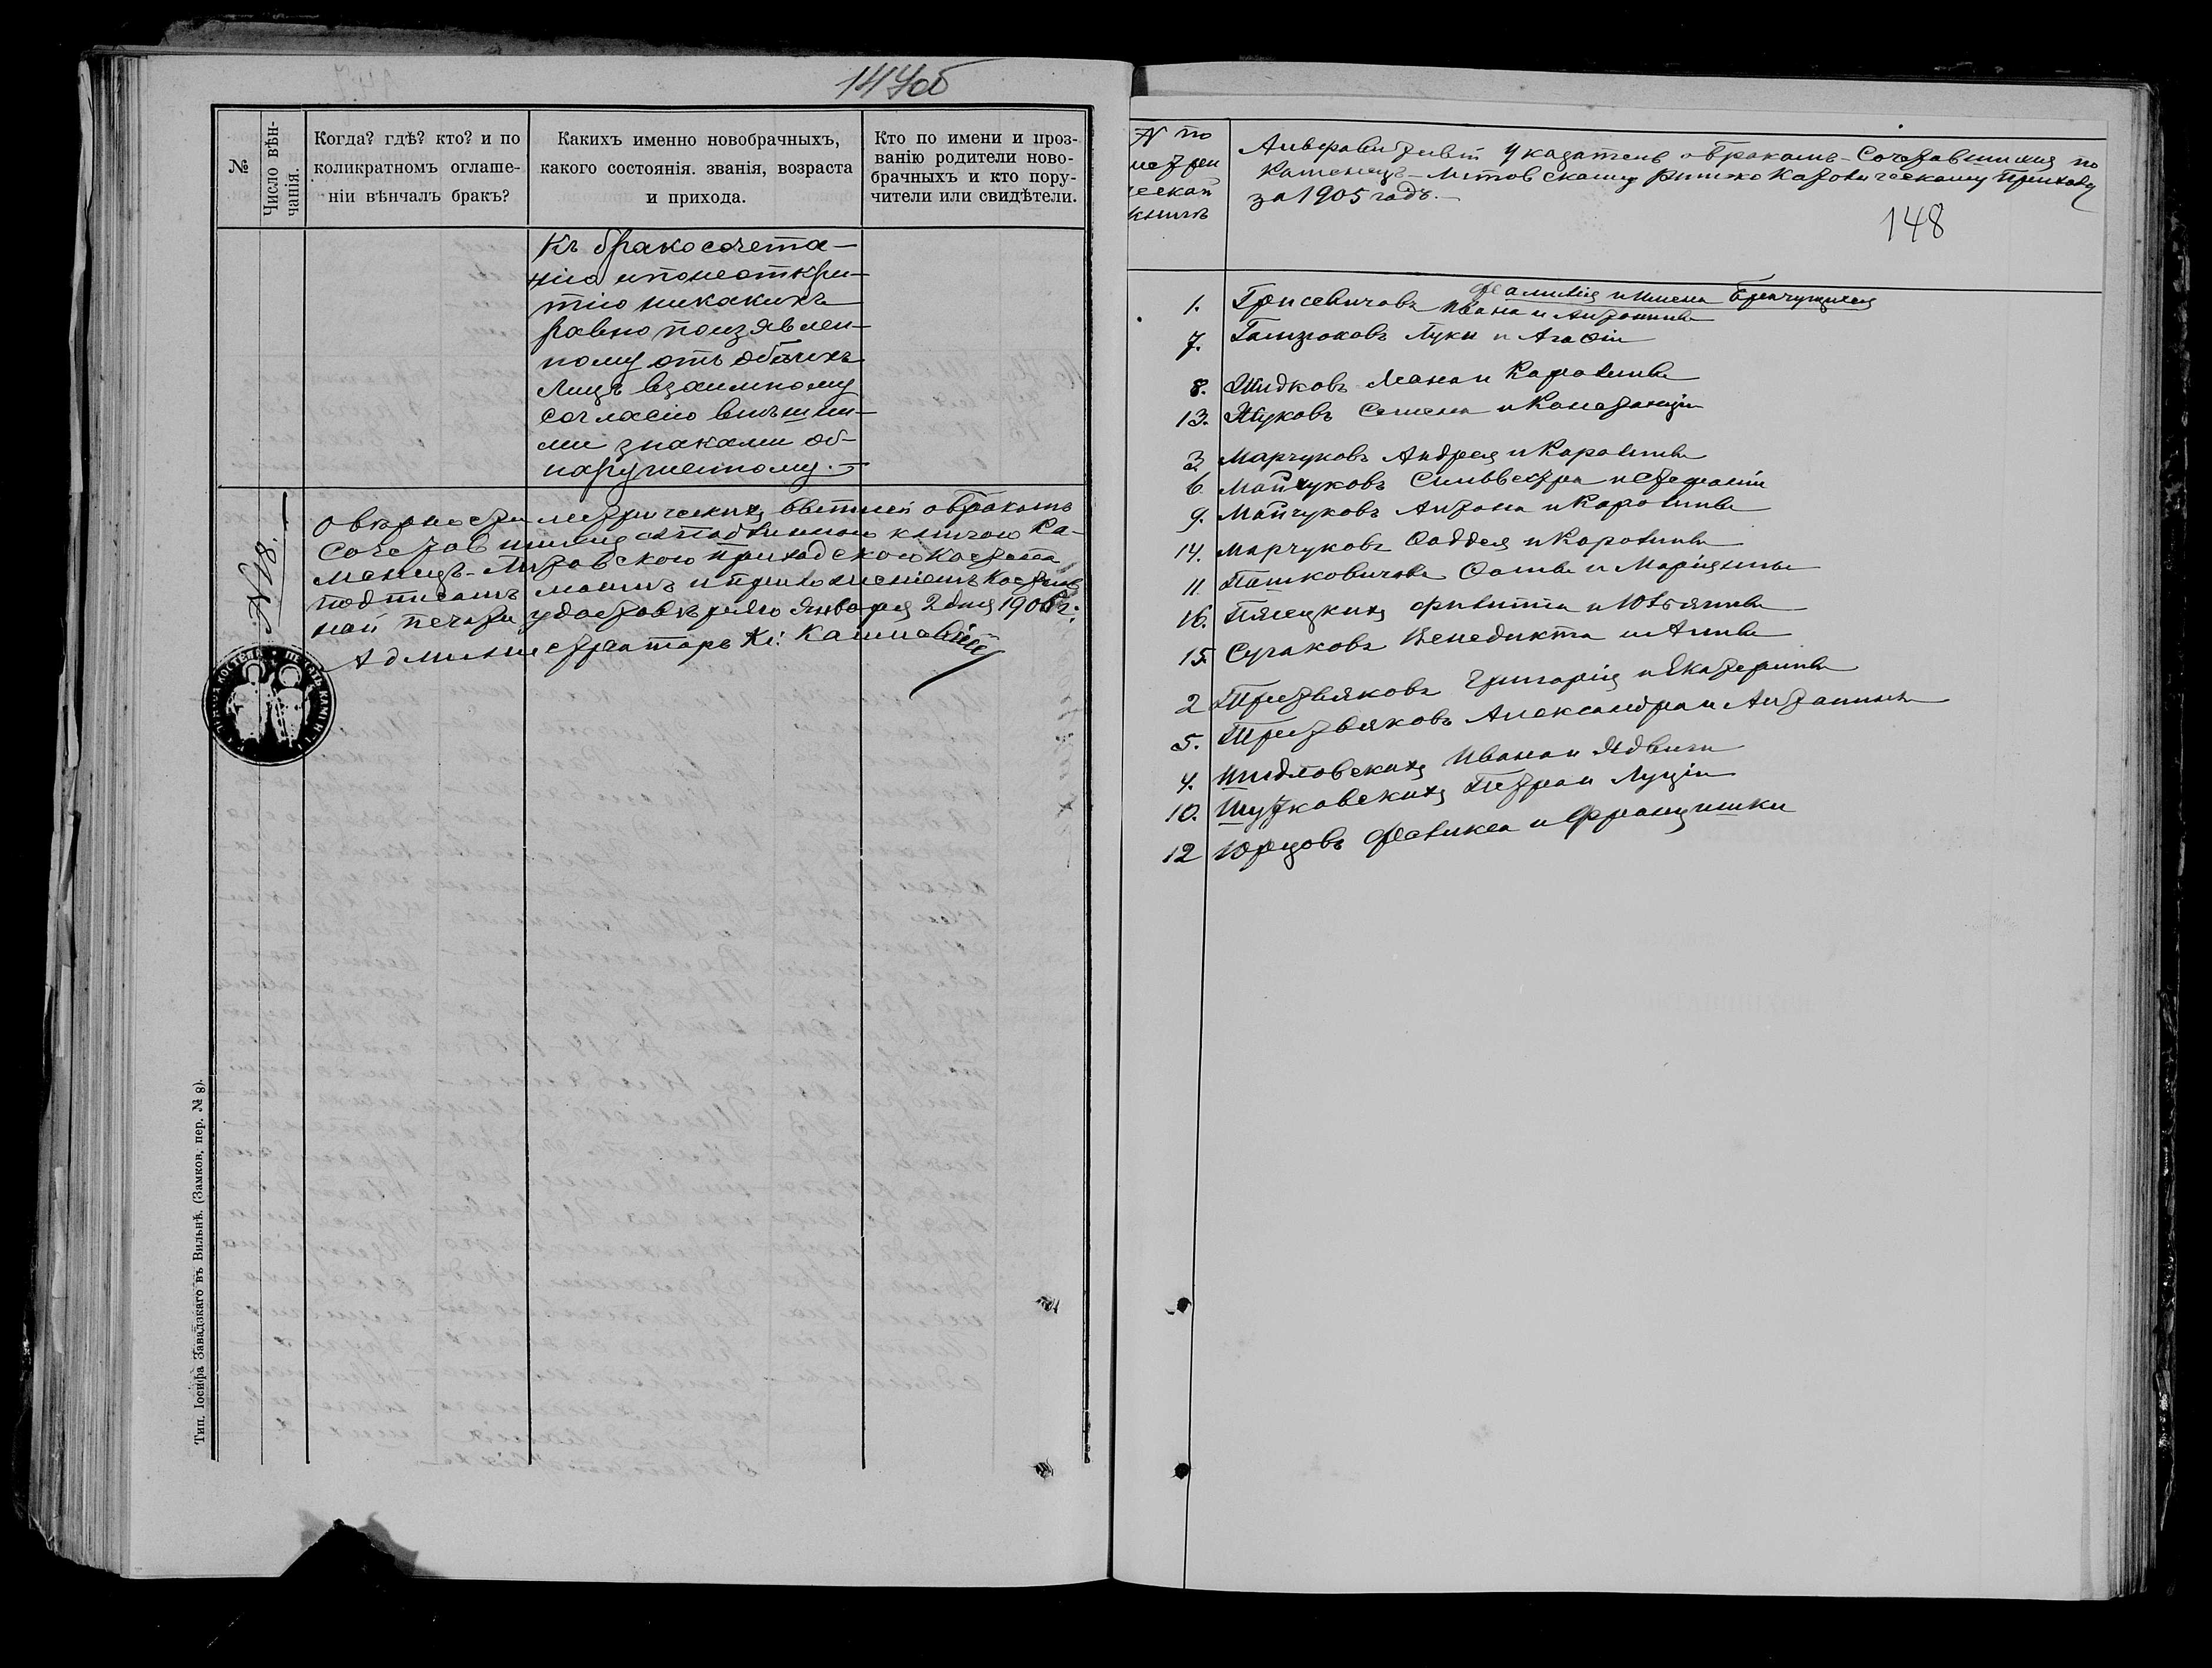 147об
№
Число вѣн-
чанія.
Когда? гдѣ? кто? и по
коликратномъ оглаше-
ніи вѣнчалъ бракъ?
Какихъ именно новобрачныхъ,
какого состоянія. званія, возраста
и прихода.
Кто по имени и проз-
ванію родители ново-
брачныхъ и кто пору-
чители или свидѣтели.
Къ бракосочета-
нію и по неоткры-
тію никакихъ
равно по изъявлен-
ному отъ обоихъ
лицъ взаимному
согласію внѣшни-
ми знаками об-
наруженному.
№18.
О верности метрическихъ о бракомъ
Сочетавшихся книгою Ка-
менецъ-Литовскою приходскою Костела
подписомъ моимъ и приложеніемъ Костель
ной печати удостовѣряю Января 2 дня 1906 г.
Администраторъ Кс:
Тип. Іосифа Завадзкаго въ Вильнѣ. (Замков. пер. № 8).
N по
метри
ческой
книгѣ
Алфавитный указатель о бракомъ-Сочетавшихся по
Каменецъ-Литовскому Римско Католическому Приходу
за 1905 годъ.
148
Фамилія и имена Брачущихся
1. Грисевичовъ Ивана и Антонины
7. Луки и Агафіи
8. Жидковъ Ивана и Каролины
13. Жуковъ Семена и Констанціи
3. Марчуковъ Андрея и Каролины
6. Майчуковъ Сильвестра и Стефаніи
9. Майчуковъ Антона и Каролины
14. Марчуковъ Фаддея и Каролины
11. Пашковичовъ Фомы и Маріянны
16. Пясецкихъ Филиппа и Юліянны
15. Сучаковъ Венедикта и Анны
2 Третьяковъ Григорія и Екатерины
5. Третьяковъ Александра и Антонины
4. Шидловскихъ Ивана и Ядвиги
10. Шутковскихъ Петра и Луціи
12 Юрцовъ Феликса и Францишки